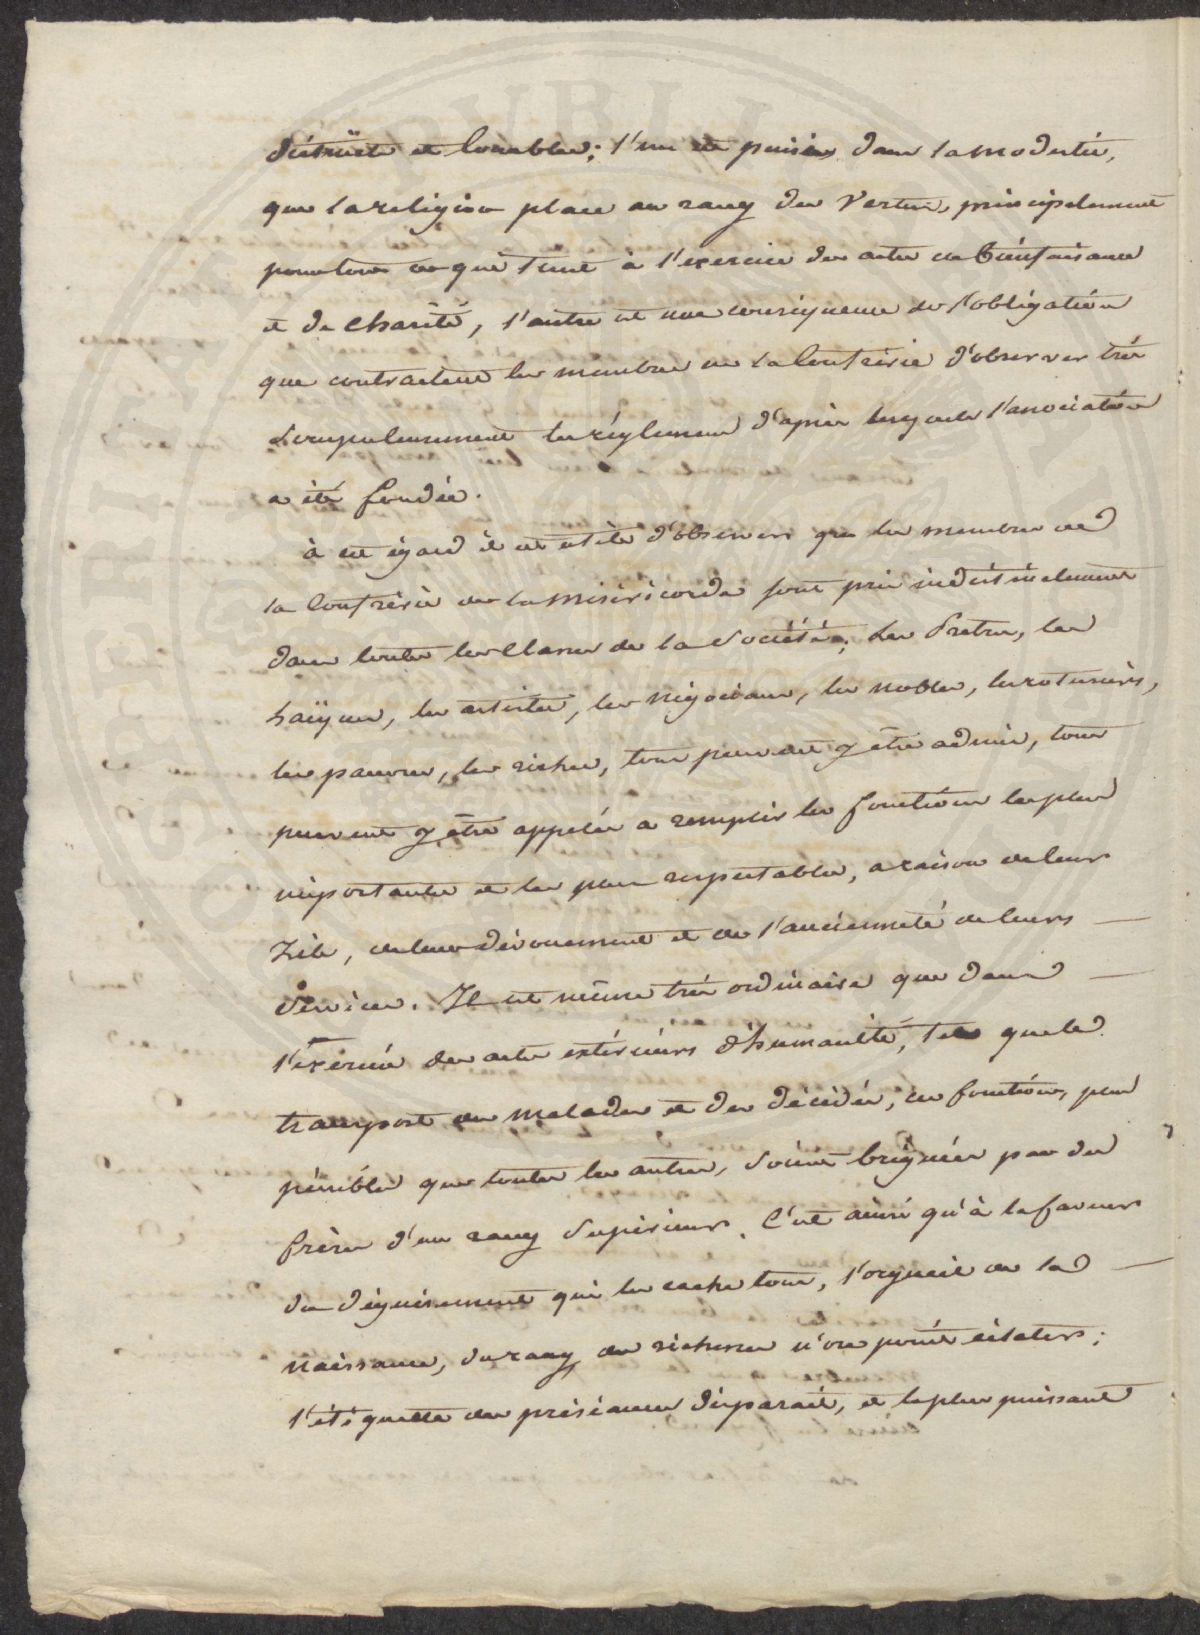 distincts et louables; l'un est puisé dans la modestie,
que la religion place au rang des Vertus, principalement
pour tout ce qui tient à l'exercice des actes de bienfaisance
et de Charité, l'autre est une conséquence de l'obligation
que contractent les membres de la Confrérie d'observer très
scrupuleusement les réglemens d'après lesquels l'association
a été fondée.
à cet égard il est utile d'observer que les membres de
la Confrérie de la Miséricorde sont pris indistinctement
dans toutes les Classes de la Société; Les Prêtres, les
Laïques, les artistes, les Négocians, les nobles, les roturiers,
les pauvres, les riches, tous peuvent y être admis, tous
peuvent y être appelés a remplir les fonctions les plus
importantes et les plus respectables, a raison de leurs
Zèle, de leur dévouement et de l'ancienneté de leurs
Services. Il est même très ordinaire que dans
l'exercice des actes extérieurs d'humanité, tels que le
transport des Malades et des décédés, ces fonctions, plus
pénibles que toutes les autres, soient briguées par des
frères d'un rang Supérieur. C'est ainsi qu'à la faveur
du déguisement qui les cache tous, l'orgueil de la
naissance, du rang, des richesses n'ose point éclater;
l'étiquette des préséances disparait, et le plus puissant